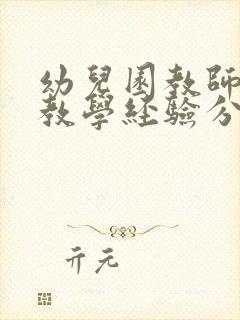 幼兒園教師
教學經驗分
亓元